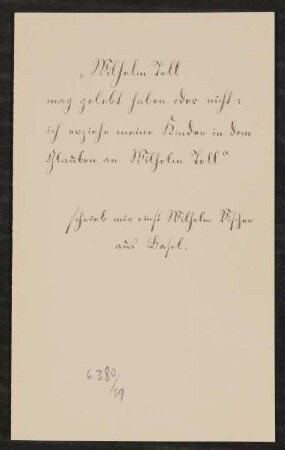 „Wilhelm Tell
mag gelebt haben oder nicht:
ich erziehe meine Kinder in dem
Glauben an Wilhelm Tell“
schrieb mir einst Wilhelm Vischer
aus Basel.
6380/59